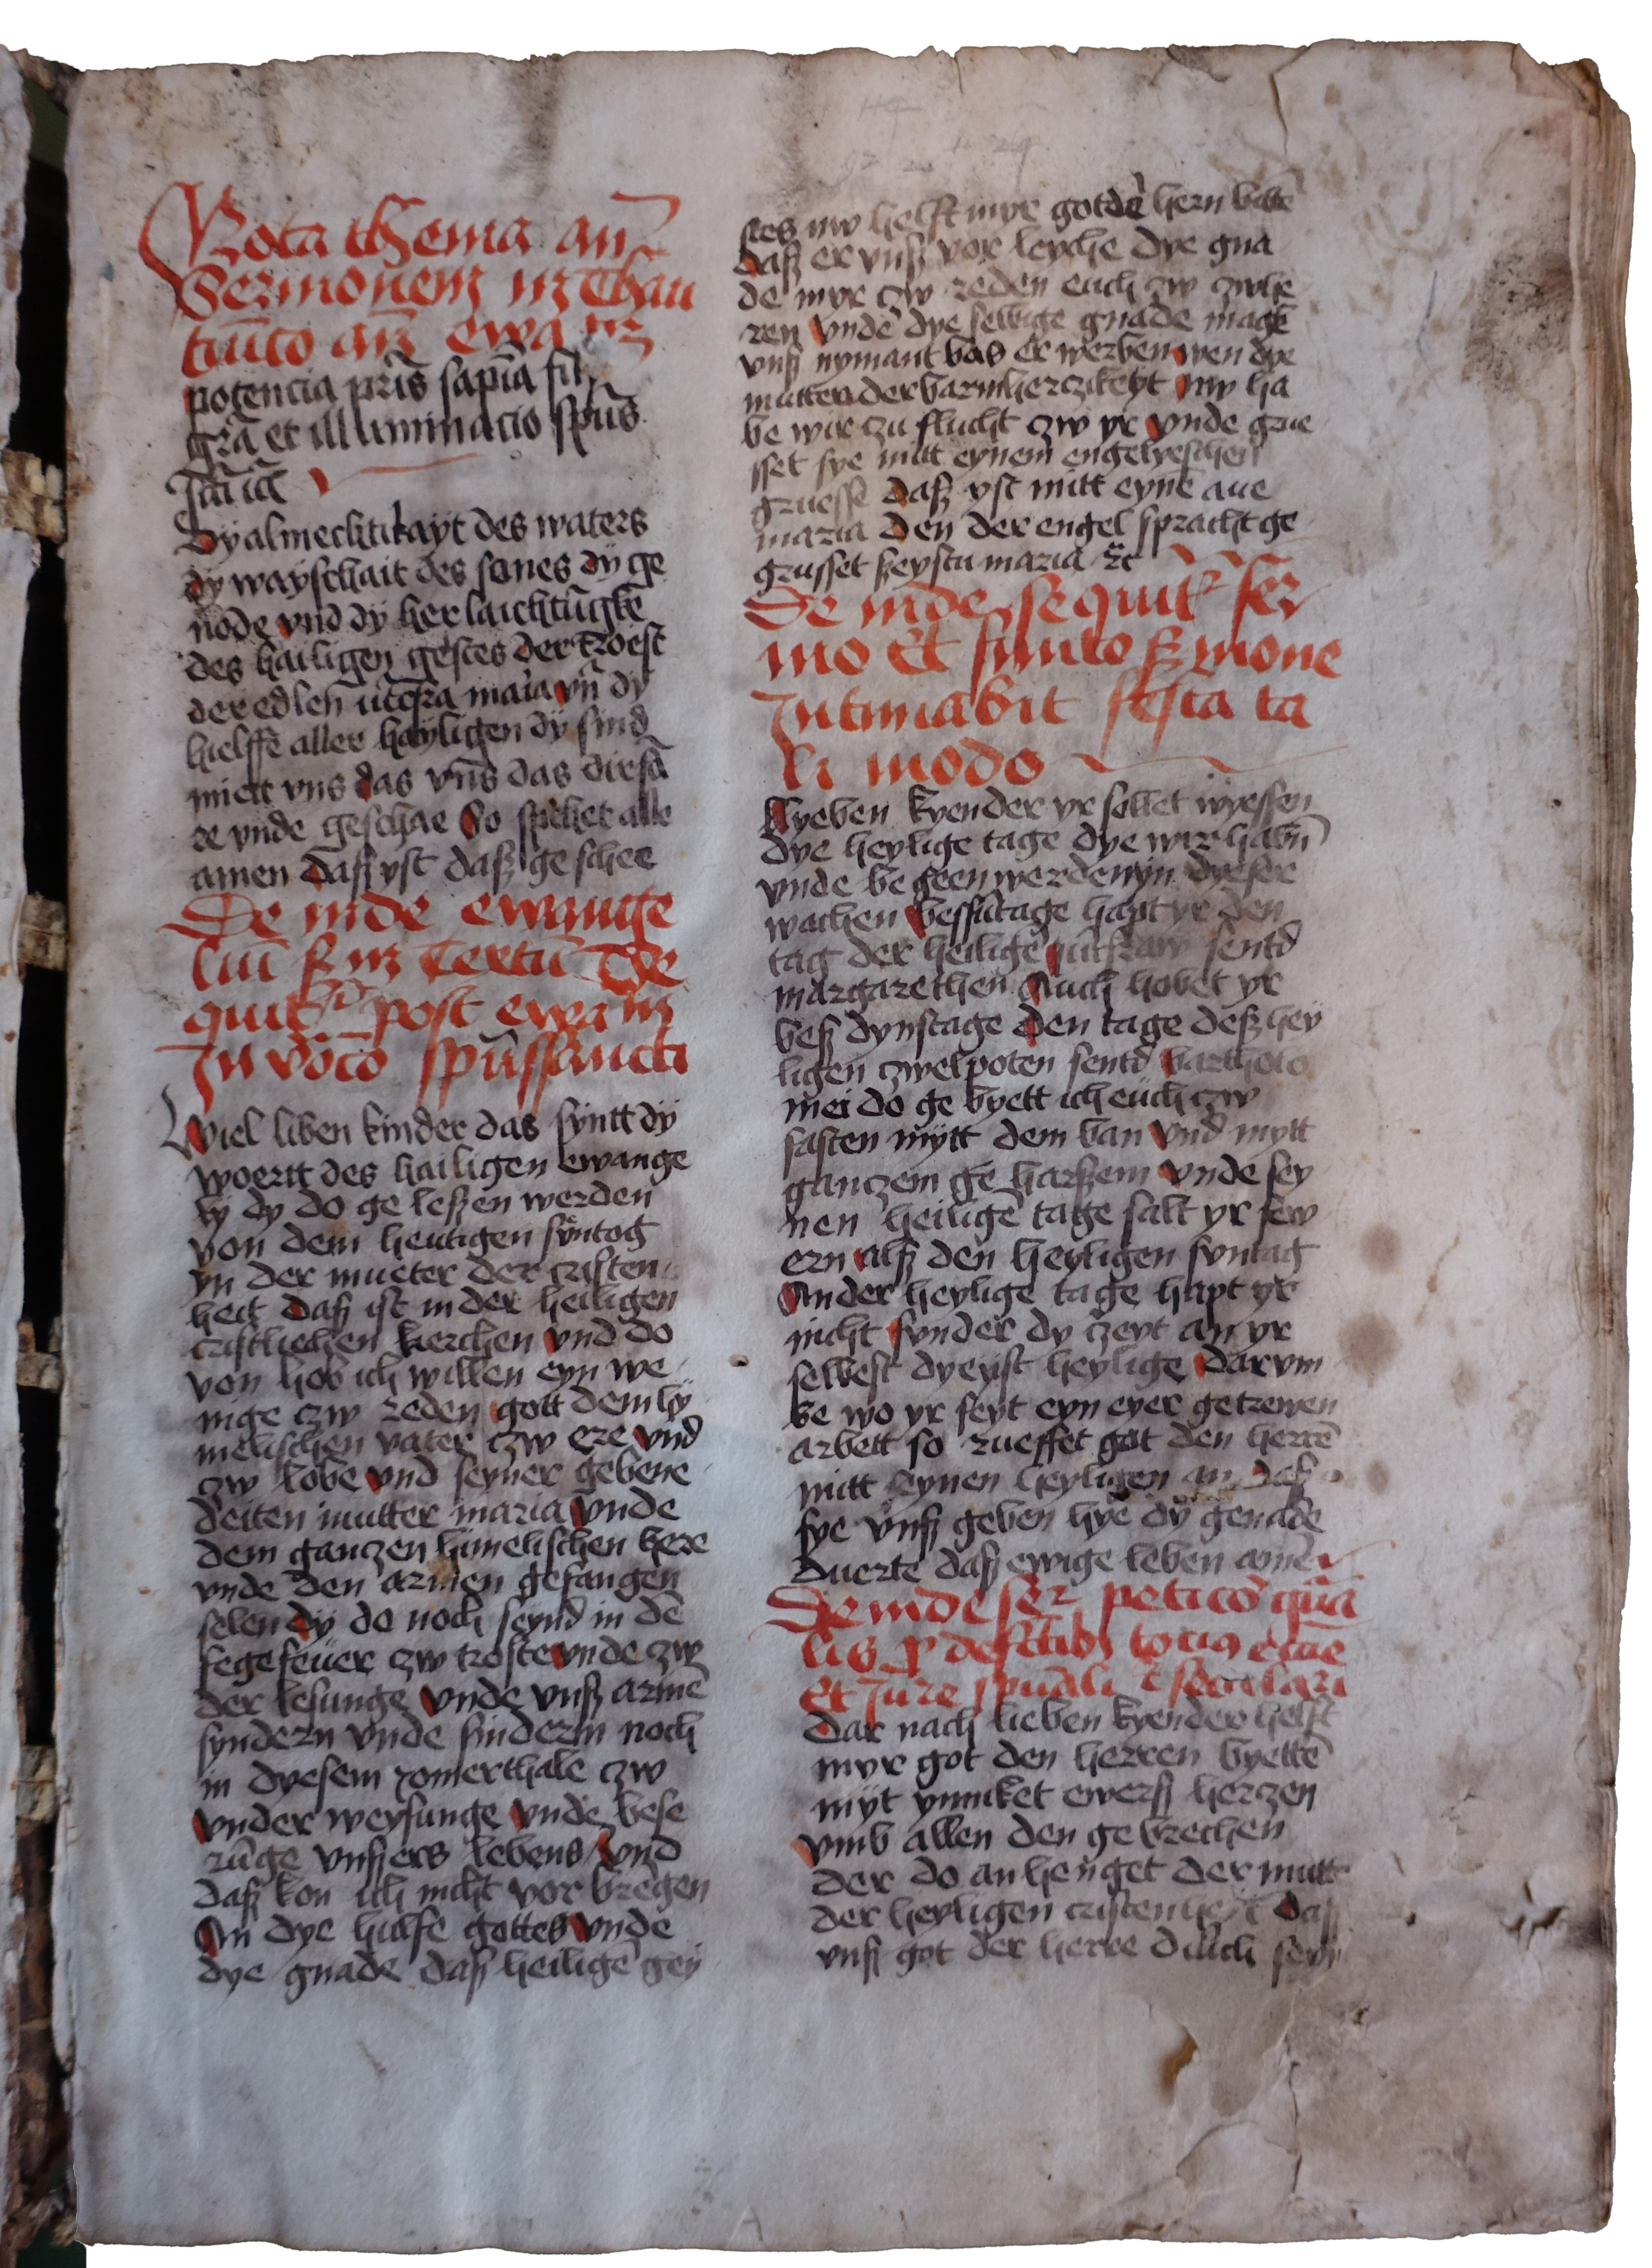 Nota thema an
Sermonem in Thau
tunico an ewam
potencia pris sapia filj
gra et illuminacio spus
scti
Dy almechtikayt des waters
dy wayschait des sones dy ge
node vnd dy herlaichtūgke
des hailigen gestes der troest
der edlen maria vn dy
hielffe aller hayligen dy sind
miett vns das vns das
re vnde geschae So sprechet alle
amen Daß yst daß geschee
De inde ewange
lium textū De
quit post ewam
In noīe spūssancti
Wiel liben kinder das syntt dy
woertt des hailigen ewange
ly dy do ge leßen werden
von dem heutigen syntog
yn der mueter der cristen
heit daß ist in der heiligen
cristlichen kerchen vnd do
von hob ich willen eyn we
nige czw reden gott dem hy
melischen vater czw ere vnd
zw lobe vnd seyner gebene
deiten mutter maria vnde
dem ganczen himelischen here
vnde den armen gefangen
selen dy do noch seynd in de
fegefeuer zw troste vnde zw
der lesunge vnde vnß arme
syndern vnde sinderin noch
in dyesem iomerthale czw
vnder weysunge vnde bese
rūge vnßers lebens vnd
daß kon ich nicht vor bregen
An dye hulfe gottes vnde
dye gnade daß heilige gey
stes nw helft myr got den hern bitte
daß er vnß vor leyche dye gna
de myr czw reden euch zw zwhe
ren vnde dye selbige gnade mage
vnß nymant bas er werben wen dye
mutter der barmherczikeyt nw ha
be wir zu flucht zw yr vnde grue
sset sye mitt eynem engelyschen
gruesse daß yst mitt eyne aue
maria den der engel spracht ge
grusset seystu maria etc
De inde sequit ser
mo Et finito sermone
Intimabit festa ta
li modo
Lyeben kyender yr sollet wyessen
dye heylige tage dye wir habn
vnde be geen werden yn dyeser
wachen deß suntage hapt yr den
tag der heilige iūckfraw sentd
margarethen Auch hobet yr
deß dynstage den tage deß hey
ligen zwelpoten sentd bartholo
mei do ge byett ich euch czw
fasten mytt dem ban vnd mytt
ganczem ge harßem vnde sey
nen heilige tage salt yr few
ern alß den heyligen syntag
Ander heylige tage hapt yr
nicht synder dy zeyt an yr
selbest dye yst heylige darvm
be wo yr seyt eyn eyer getrewen
arbett so rueffet got den herre
mitt seynen heyligen an daß
sye vnß geben hye dy genade
duerte daß ewige leben ame
De inde ser peticō gūa
lis p defectib toci ecclie
Et Jure spūali et seculari
Dar nach lieben kyender helft
myr got den herren byette
myt ynnicket ewerß herzen
vmb allen den gebrechen
der do an henget der mutt
der heyligen cristenheyt daß
vnß got der herre durch seyn